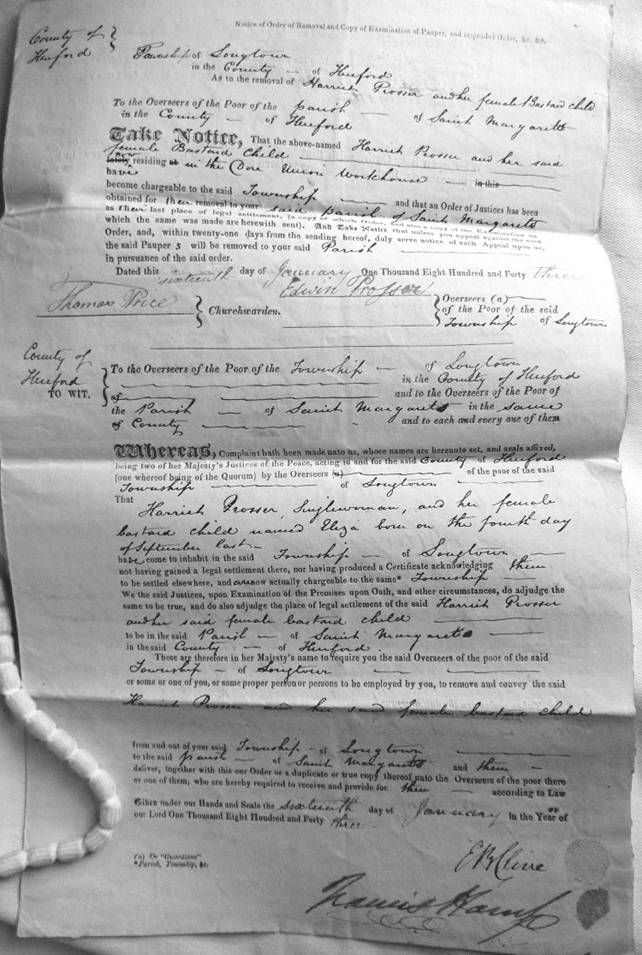 Notice of Order of Removal and Copy of Examination of Pauper, and suspended Order, &c. &c.
County of
Hereford
Township of Longtown
in the County of Hereford
As to the removal of Harriet Prosser and her female Bastard child
To the Overseers of the Poor of the parish of Saint Margarets
in the County of Hereford
Take Notice, That the above-named Harriet Prosser and her said
female Bastard Child
lately residing at in the Dore Union Workhouse in this
have
become chargeable to the said Township and that an Order of Justices has been
obtained for their removal to your said parish of Saint Margarets
as their last place of legal settlement, (a copy of which Order, and also a copy of the Examination on
which the same was made are herewith sent). And Take Notice that unless you appeal against the said
Order, and, within twenty-one days from the sending hereof, duly serve notice of such Appeal upon us,
the said Paupers will be removed to your said Parish
in pursuance of the said order.
Dated this sixteenth day of January One Thousand Eight Hundred and Forty three
Thomas Price
Churchwarden.
Edwin Prosser
Overseers (a)
of the Poor of the said
Township of Longtown
County of
Hereford
TO WIT.
To the Overseers of the Poor of the Township of Longtown
in the County of Hereford
of and to the Overseers of the Poor of
the Parish of Saint Margarets in the same
of County and to each and every one of them
Whereas, Complaint hath been made unto us, whose names are hereunto set, and seals affixed,
being two of her Majesty's Justices of the Peace, acting in and for the said County of Hereford
(one whereof being of the Quorum) by the Overseers (a) of the poor of the said
Township of Longtown
That
Harriet Prosser, Singlewoman, and her female
bastard child named Eliza born on the fourth day
of September last
have come to inhabit in the said Township of Longtown
not having gained a legal settlement there, nor having produced a Certificate acknowledging them
to be settled elsewhere, and are now actually chargeable to the same* Township
We the said Justices, upon Examination of the Premises upon Oath, and other circumstances, do adjudge the
same to be true, and do also adjudge the place of legal settlement of the said Harriet Prosser
and her said female bastard child
to be in the said Parish of Saint Margarets
in the said County of Hereford.
These are therefore in her Majesty's name to require you the said Overseers of the poor of the said
Township of Longtown
or some or one of you, or some proper person or persons to be employed by you, to remove and convey the said
Harriet Prosser and her said female bastard child
from and out of your said Township of Longtown
to the said parish of Saint Margarets and them
deliver, together with this our Order or a duplicate or true copy thereof unto the Overseers of the poor there
or one of them, who are hereby required to receive and provide for them according to Law
Given under our Hands and Seals the sixteenth day of January in the Year of
our Lord One Thousand Eight Hundred and Forty three.
(a) Or "Guardians"
*Parish, Township, &c.
E B Clive
Francis Hamp